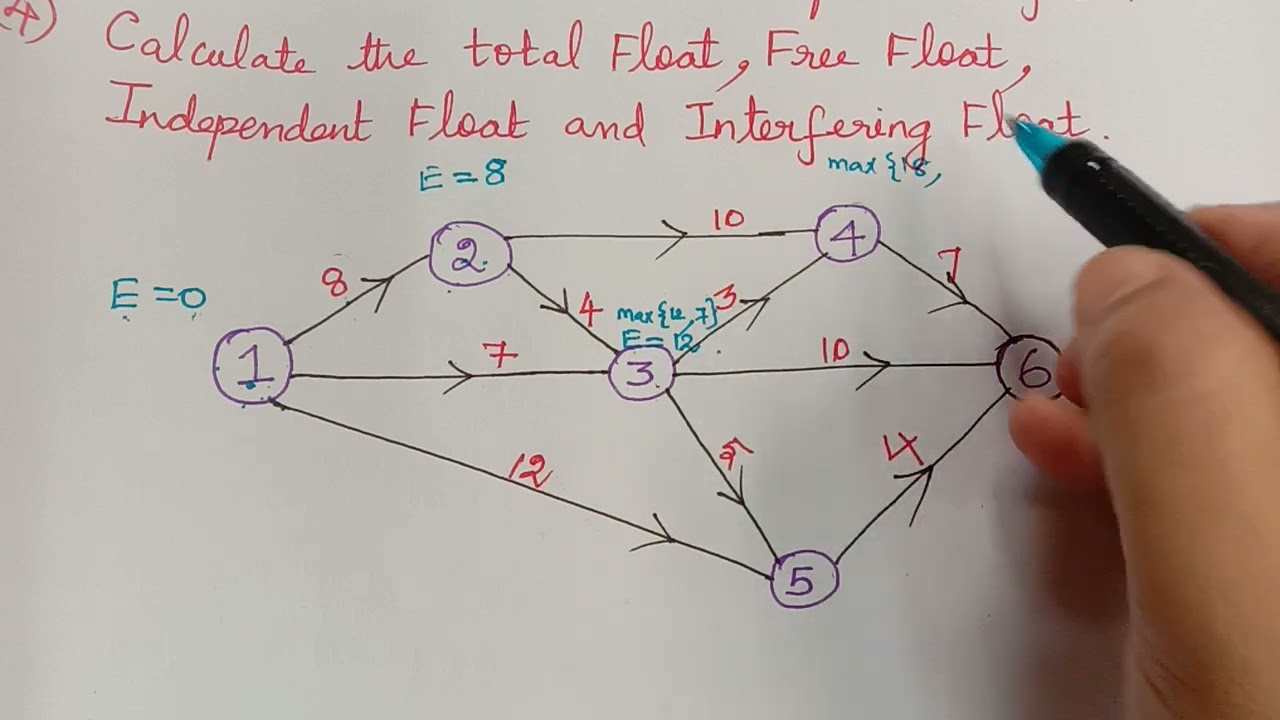 4)
Calculate the total Float, Free Float,
Independent Float and Interfering Float.
E = 8
max {18,
2
10
4
8
7
E = 0
4
max{12, 7}
3
E = 12
1
7
3
10
6
12
4
5